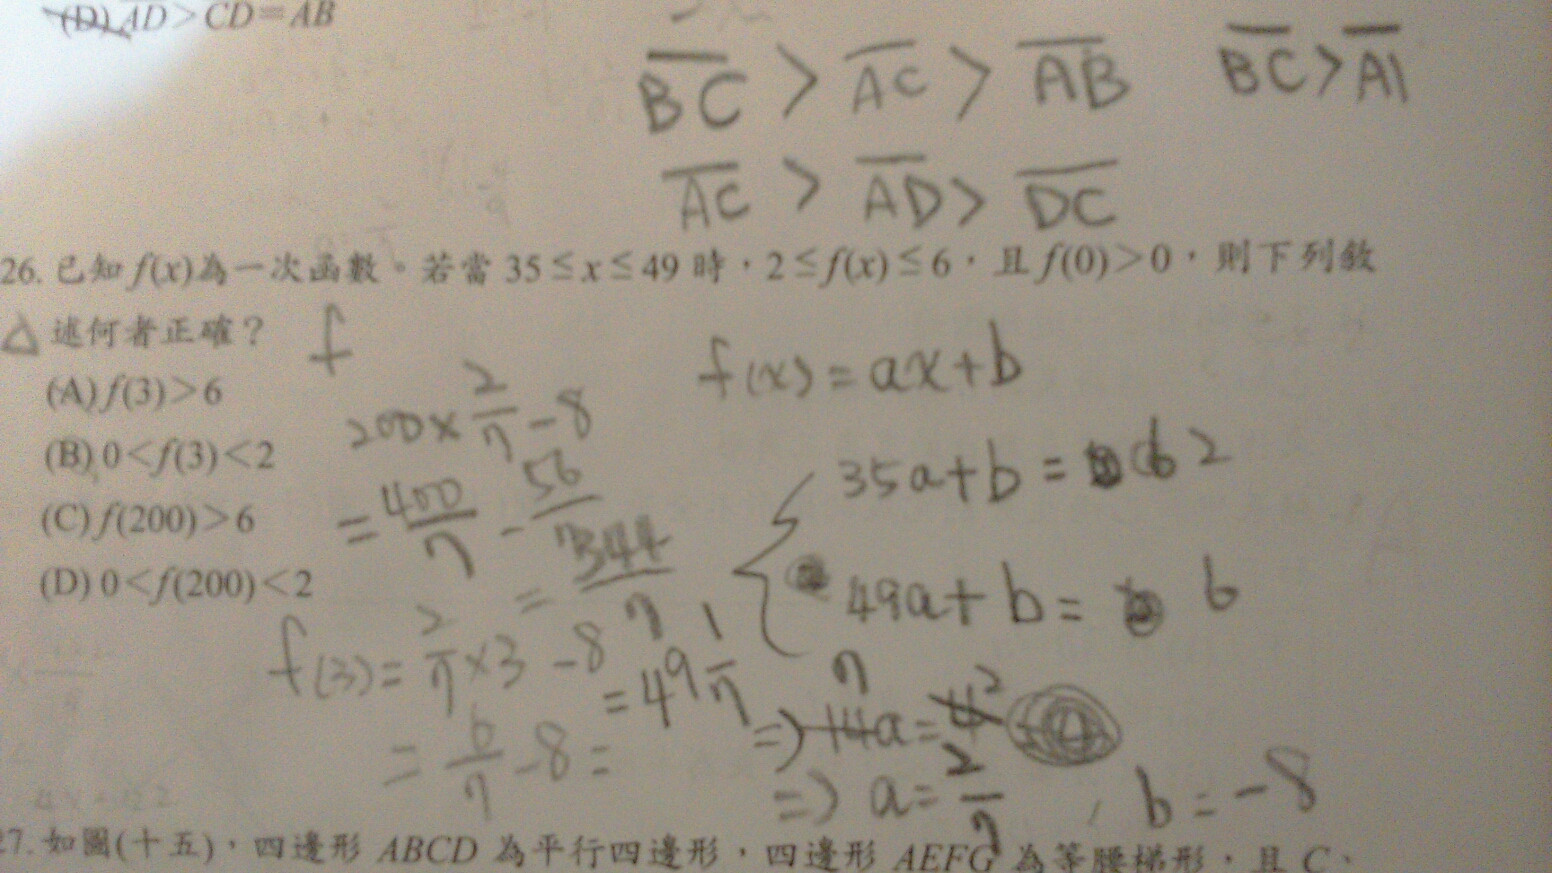 (D) AD>CD=AB
BC > AC > AB BC>A
AC > AD > DC
26. 已知 f(x)為一次函數。若當 35≤x≤49 時，2≤f(x)≤6，且 f(0)>0，則下列敘
△ 述何者正確？ f
f(x)=ax+b
(A) f(3)>6
200×2/7-8
(B) 0<f(3)<2
35a+b= 2
=400/7-56/7
(C) f(200)>6
=344/7
(D) 0<f(200)<2
49a+b= 6
=49 1/7
f(3)=2/7×3-8
=6/7-8=
=>14a=4
=>a=2/7, b=-8
27. 如圖(十五)，四邊形 ABCD 為平行四邊形，四邊形 AEFG 為等腰梯形，且 C、